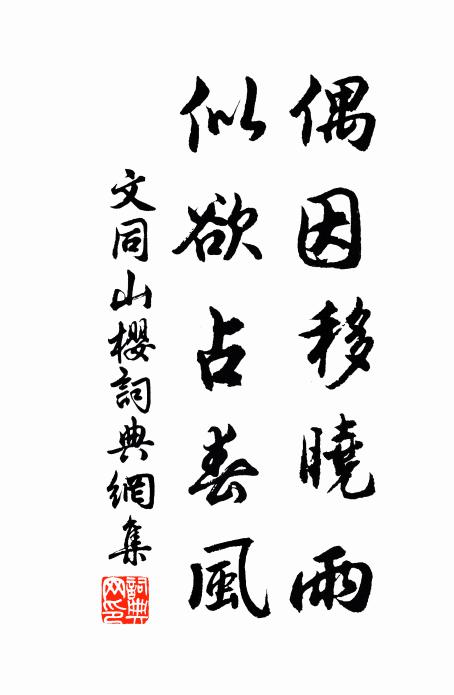 偶因移曉雨
似欲占春風
文同山櫻詞典網集
詞典網印